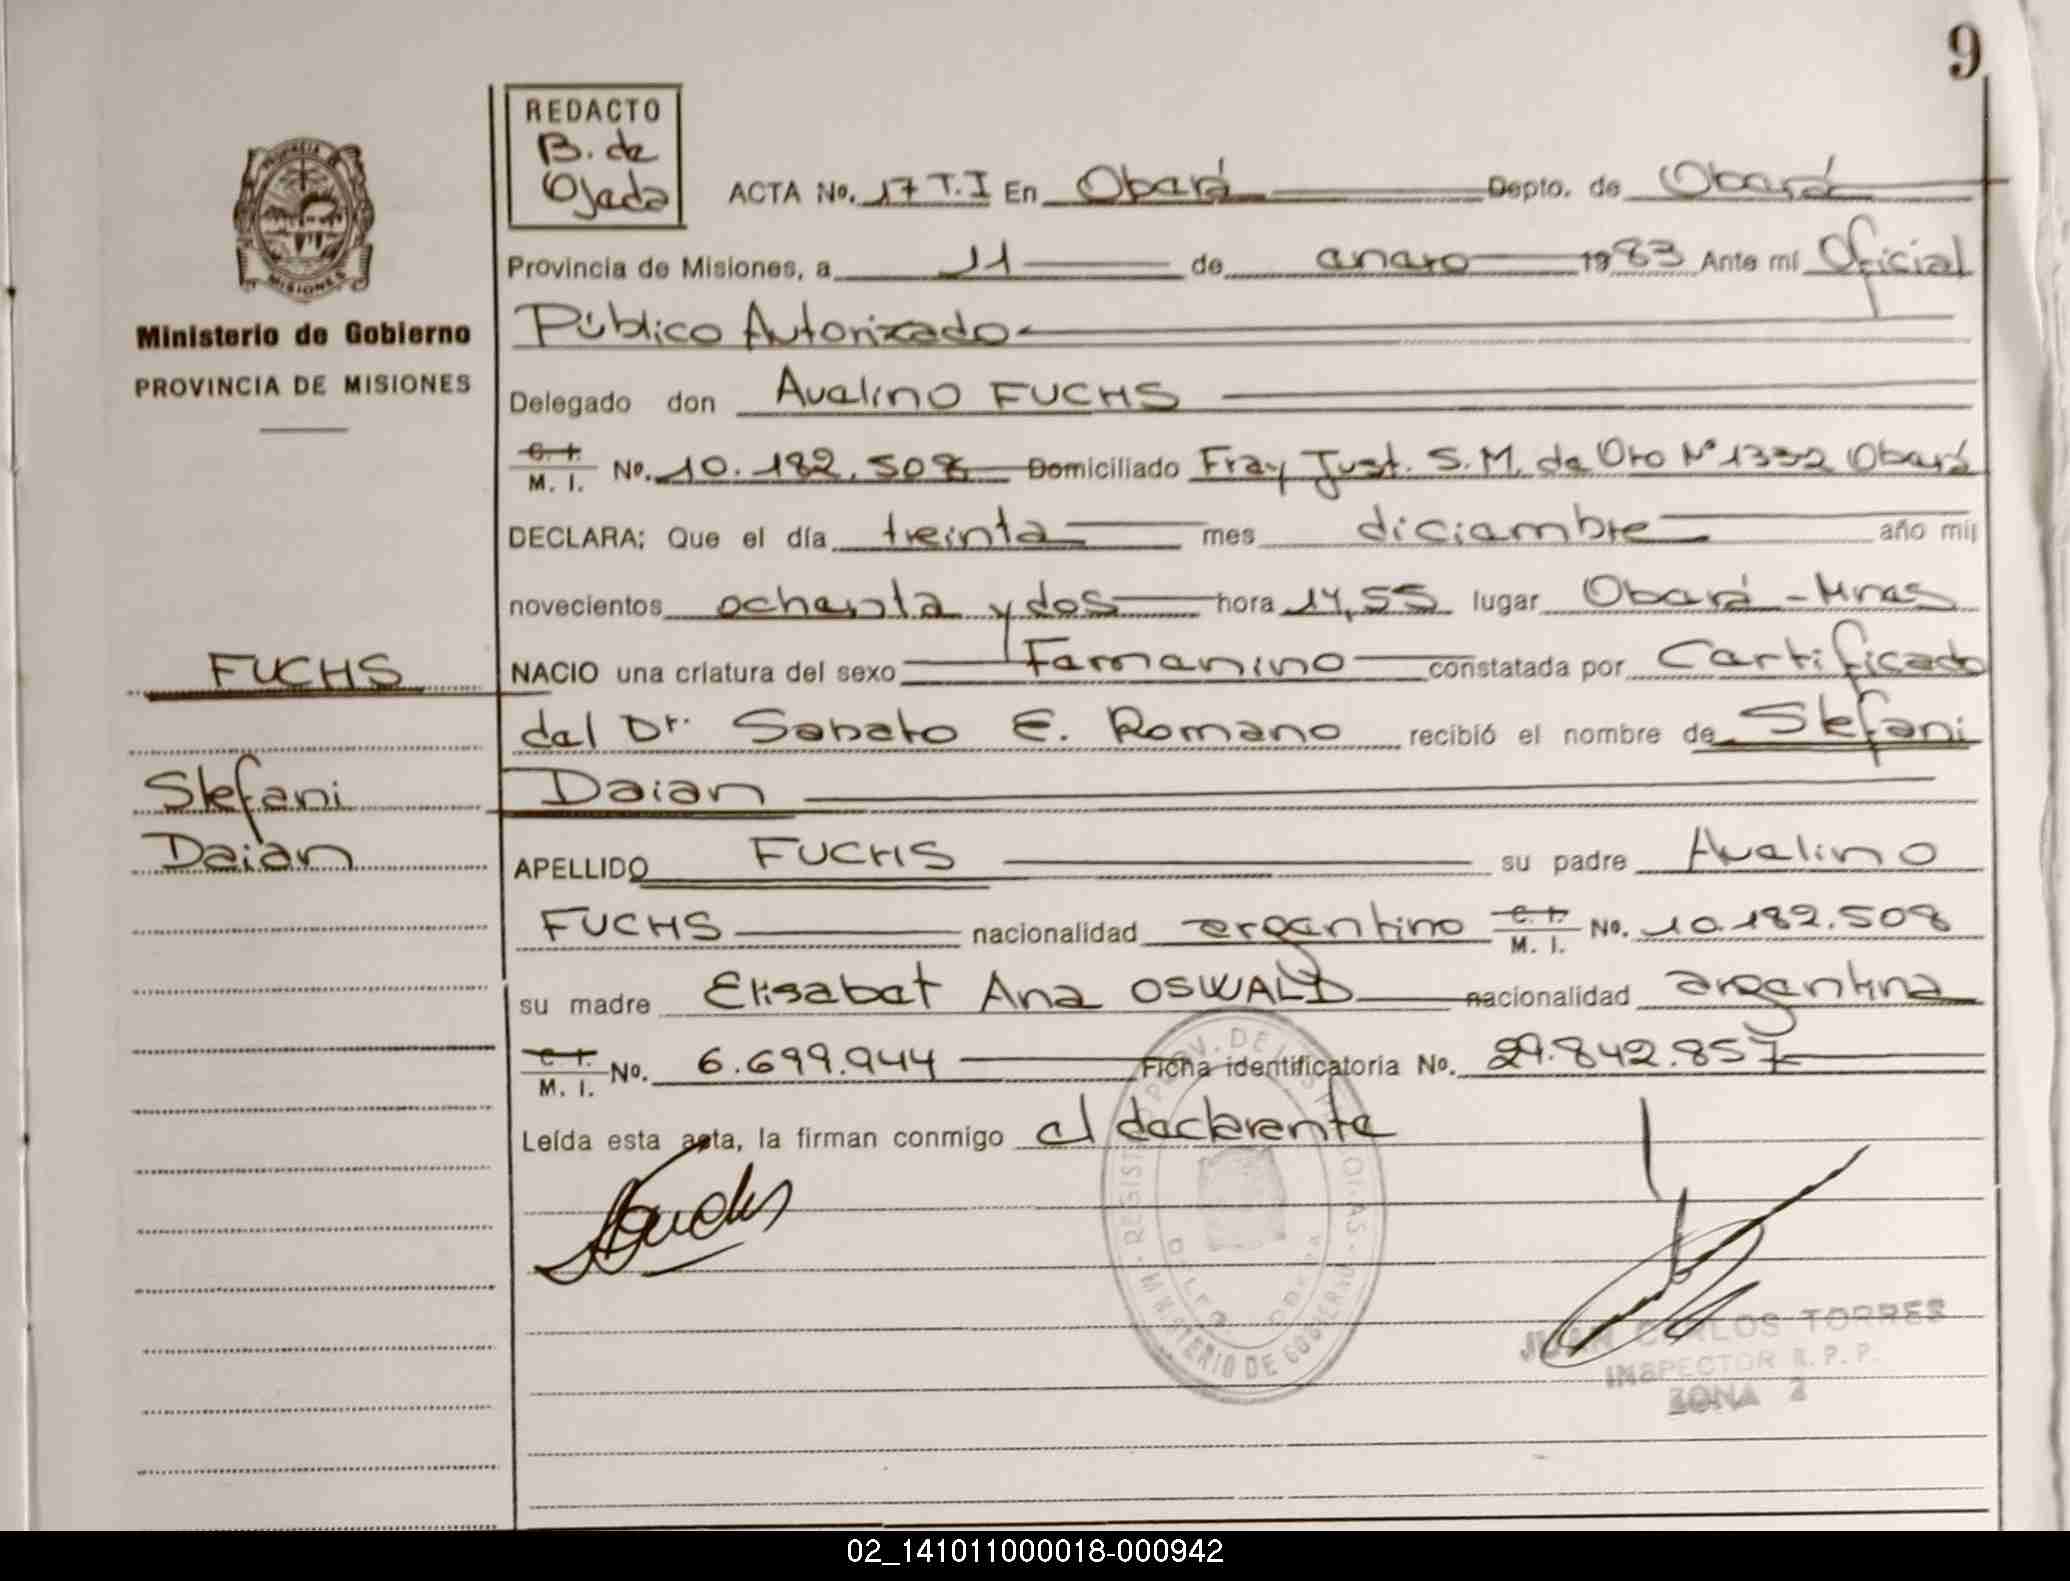 9
REDACTO
B. de
Ojeda
ACTA No. 17 T.I En Oberá Depto. de Oberá
Provincia de Misiones, a 11 de enero 1983 Ante mí Oficial
Público Autorizado
Ministerio de Gobierno
PROVINCIA DE MISIONES
Delegado don Avelino FUCHS
C. I.
M. I. No. 10.182.508 Domiciliado Fray Just. S.M. de Oro Nº 1332 Oberá
DECLARA: Que el día treinta mes diciembre año mil
novecientos ochenta y dos hora 14,55 lugar Oberá - Mnes
FUCHS
NACIO una criatura del sexo Femenino constatada por Certificado
del Dr. Sabato E. Romano recibió el nombre de Stefani
Stefani
Daian
Daian
APELLIDO FUCHS su padre Avelino
FUCHS nacionalidad argentino C. I.
M. I. No. 10.182.508
su madre Elisabet Ana OSWALD nacionalidad argentina
C. I.
M. I. No. 6.699.944 Ficha identificatoria No. 29.842.857
Leída esta acta, la firman conmigo el declarante
JUAN CARLOS TORRES
INSPECTOR R. P. P.
ZONA 2
02_141011000018-000942